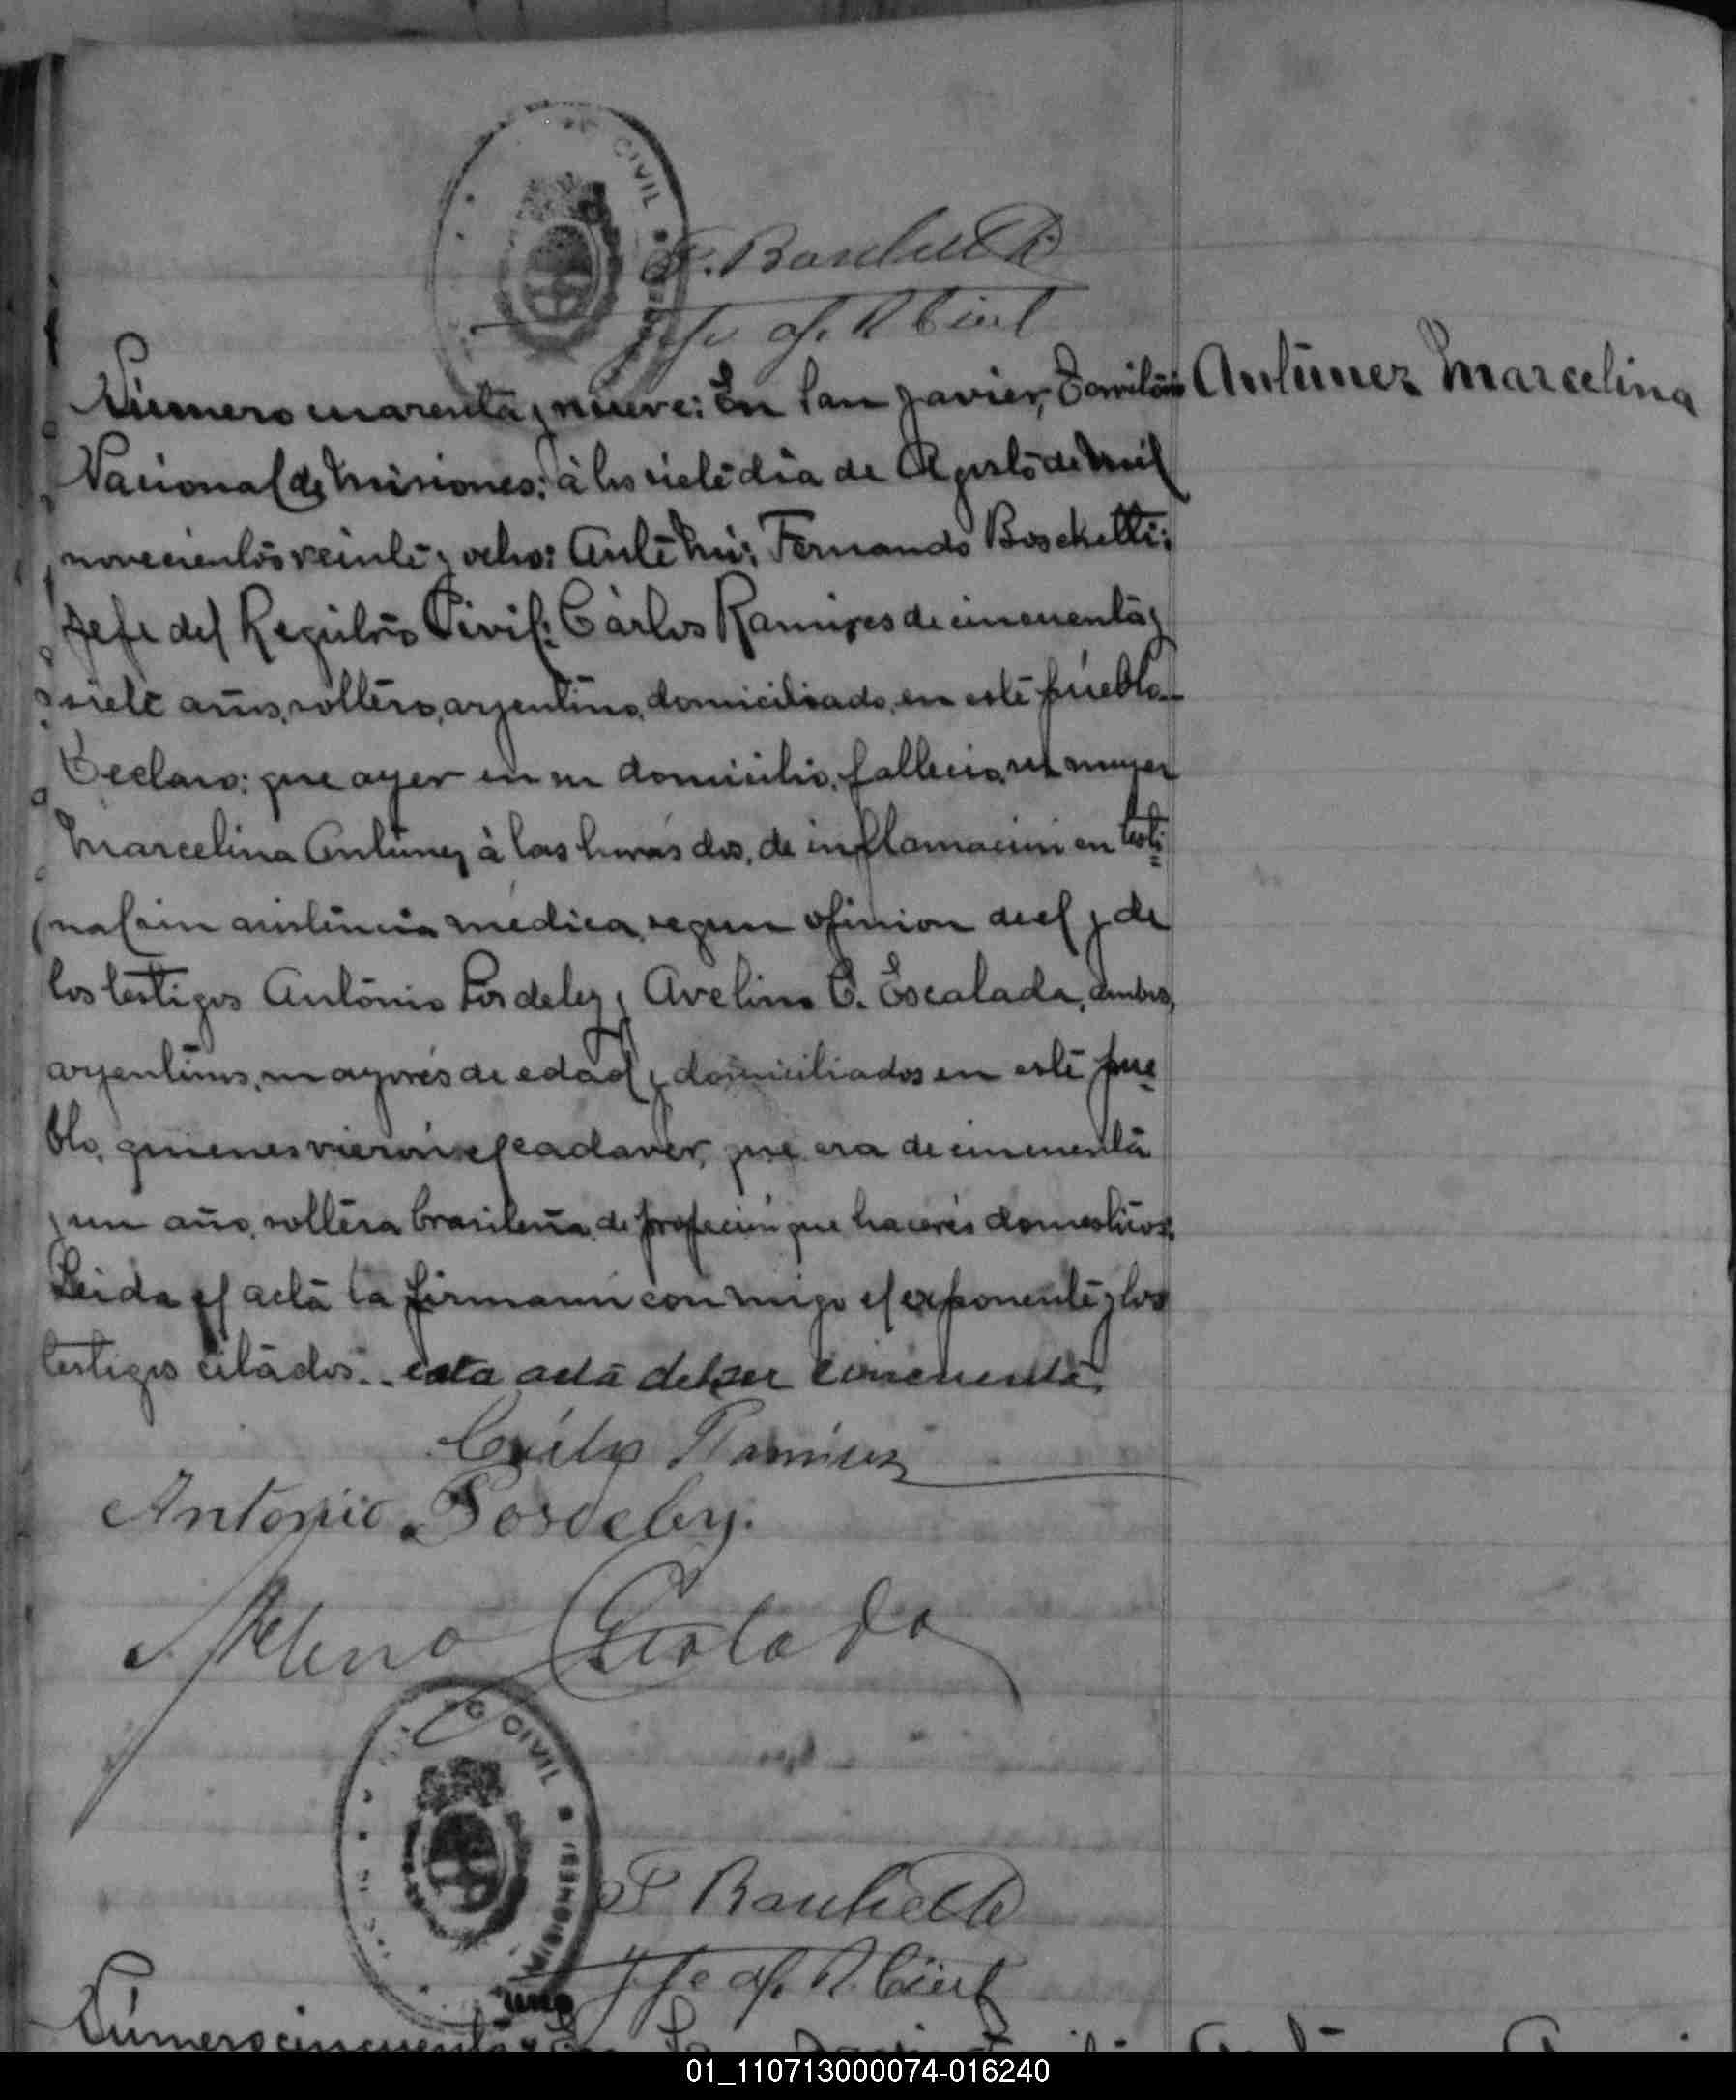 CIVIL
F. Boschetti
Jefe of. R Civil
Número cuarenta y nueve: En San Javier, Territorio
Antúnez Marcelina
Nacional de Misiones; à los siete dia de Agosto de mil
novecientos veinte y ocho: Ante mi: Fernando Boschetti:
Jefe del Registro Civil: Cárlos Ramires de cincuenta y
siete años, soltero, arjentino, domiciliado, en este pueblo
Declaro: que ayer en su domicilio, fallecio, su mujer
Marcelina Antunez à las horas dos, de inflamacion en testi
nal sin asistencia médica, segun opinion de el y de
los testigos António Posdeley y Avelino C. Escalada, ambos,
arjentinos, mayores de edad y domiciliados en este pue
blo, quienes vieron el cadaver, que era de cincuenta
y un año, soltera brasileña, de profecion que haceres domesticos:
Leida el acta la firmaron con migo el exponente y los
testigos citados... esta acta debe ser cincuenta.
Carlos Ramirez
Antonio Posdeley.
Avelino Escalada
CIVIL
MISIONES
F Boschetti
Jefe of. R. Civil
Número cincuenta y uno